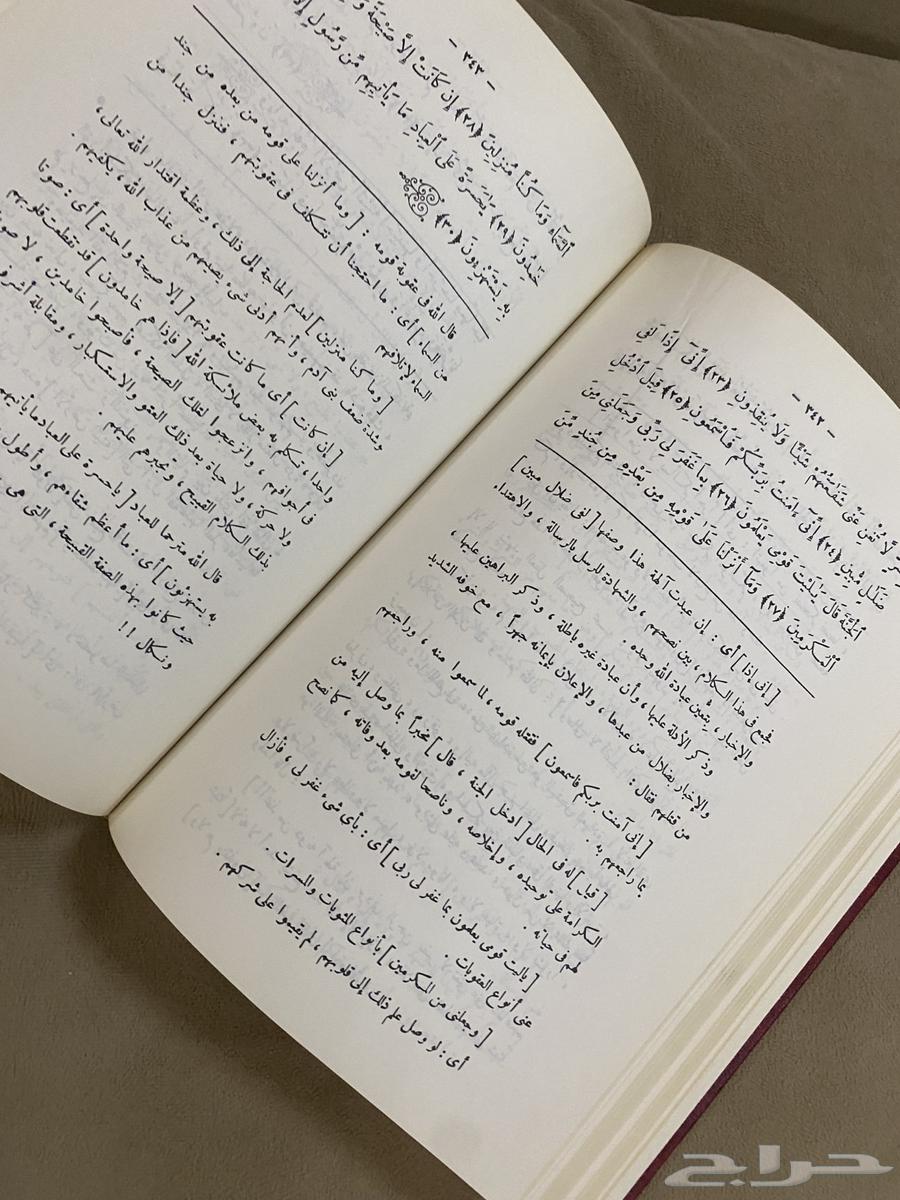 — ٣٤٢ —
لَّا تُغْنِ عَنِّى شَفَٰعَتُهُمْ شَيْـًٔا وَلَا يُنقِذُونِ ﴿٢٣﴾ إِنِّىٓ إِذًا لَّفِى
ضَلَٰلٍ مُّبِينٍ ﴿٢٤﴾ إِنِّىٓ ءَامَنتُ بِرَبِّكُمْ فَٱسْمَعُونِ ﴿٢٥﴾ قِيلَ ٱدْخُلِ
ٱلْجَنَّةَ قَالَ يَٰلَيْتَ قَوْمِى يَعْلَمُونَ ﴿٢٦﴾ بِمَا غَفَرَ لِى رَبِّى وَجَعَلَنِى مِنَ
ٱلْمُكْرَمِينَ ﴿٢٧﴾ وَمَآ أَنزَلْنَا عَلَىٰ قَوْمِهِۦ مِنۢ بَعْدِهِۦ مِن جُندٍ مِّنَ
[ إنى إذا ] أى : إن عبدت آلهة هذا وصفها [ لفى ضلال مبين ]
فجمع فى هذا الكلام ، بين نصحهم ، والشهادة للرسل بالرسالة ، والاهتداء
والإخبار ، بتعين عبادة الله وحده .
وذكر الأدلة عليها ، وأن عبادة غيره باطلة ، وذكر البراهين عليها ،
والإخبار بضلال من عبدها ، والإعلان بإيمانه جهراً ، مع خوفه الشديد
من قتلهم فقال :
[ إنى آمنت بربكم فاسمعون ] فقتله قومه ، لما سمعوا منه ، وراجعهم
بما راجعهم به .
[ قيل ] له فى الحال [ ادخل الجنة ، قال ] مخبراً بما وصل إليه من
الكرامة على توحيده ، وإخلاصه ، وناصحا لقومه بعد وفاته ، كما نصح
لهم فى حياته .
[ ياليت قومى يعلمون بما غفر لى ربى ] أى : بأى شىء غفر لى ، فأزال
عنى أنواع العقوبات .
[ وجعلنى من المكرمين ] بأنواع المثوبات والمسرات .
أى : لو وصل علم ذلك إلى قلوبهم ، لم يقيموا على شركهم .
— ٣٤٣ —
ٱلسَّمَآءِ وَمَا كُنَّا مُنزِلِينَ ﴿٢٨﴾ إِن كَانَتْ إِلَّا صَيْحَةً
خَٰمِدُونَ ﴿٢٩﴾ يَٰحَسْرَةً عَلَى ٱلْعِبَادِ مَا يَأْتِيهِم مِّن رَّسُولٍ إِلَّا
بِهِۦ يَسْتَهْزِءُونَ ﴿٣٠﴾
قال الله فى عقوبة قومه : [ وما أنزلنا على قومه من بعده من جند
من السماء ] أى : ما احتجنا أن نتكلف فى عقوبتهم ، فننزل جندا من
السماء لإتلافهم
[ وما كنا منزلين ] لعدم الحاجة إلى ذلك ، وعظمة اقتدار الله تعالى ،
وشدة ضعف بنى آدم ، وأنهم أدنى شىء يصيبهم من عذاب الله ، يكفيهم .
[ إن كانت ] أى ما كانت عقوبتهم [ إلا صيحة واحدة ] أى : صوتا
واحدا ، تكلم به بعض ملائكة الله [ فإذا هم خامدون ] قد تقطعت قلوبهم
فى أجوافهم ، وانزعجوا لتلك الصيحة ، فأصبحوا خامدين ، لا صوت
ولا حركة ، ولا حياة بعد ذلك العتو والاستكبار ، ومقابلة أشرف
بذلك الكلام القبيح ، وتجبرهم عليهم .
قال الله مترحما للعباد [ ياحسرة على العباد ما يأتيهم
به يستهزئون ] أى : ما أعظم شقاءهم ، وأطول
حيث كانوا بهذه الصفة القبيحة ، التى هى
ونكال !!
حراج